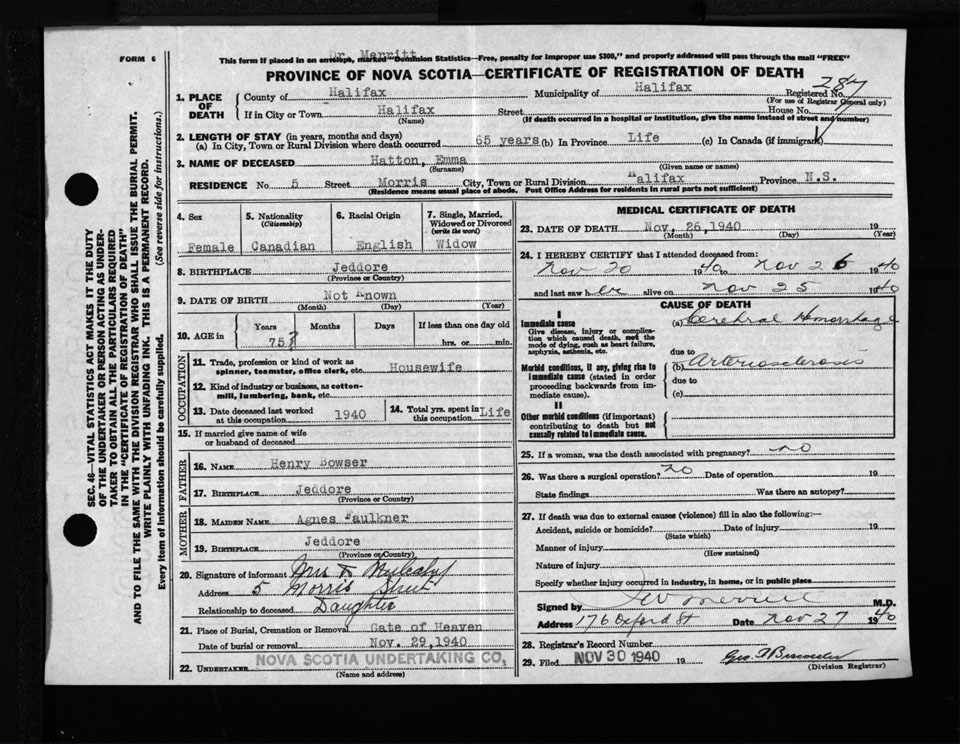 FORM 6
Dr. Merritt
This form if placed in an envelope, marked "Dominion Statistics—Free, penalty for improper use $300," and properly addressed will pass through the mail "FREE"
PROVINCE OF NOVA SCOTIA—CERTIFICATE OF REGISTRATION OF DEATH
1. PLACE OF DEATH
County of Halifax Municipality of Halifax Registered No. 287
(For use of Registrar General only)
If in City or Town Halifax Street House No.
(Name) (If death occurred in a hospital or institution, give the name instead of street and number)
2. LENGTH OF STAY (in years, months and days)
(a) In City, Town or Rural Division where death occurred 65 years (b) In Province Life (c) In Canada (if immigrant)
3. NAME OF DECEASED Hatton, Emma
(Surname) (Given name or names)
RESIDENCE No. 5 Street Morris City, Town or Rural Division Halifax Province N.S.
(Residence means usual place of abode. Post Office Address for residents in rural parts not sufficient)
4. Sex
Female
5. Nationality
(Citizenship)
Canadian
6. Racial Origin
English
7. Single, Married, Widowed or Divorced
(write the word)
Widow
8. BIRTHPLACE Jeddore
(Province or Country)
9. DATE OF BIRTH Not Known
(Month) (Day) (Year)
10. AGE in
Years Months Days If less than one day old
75 hrs. or min.
OCCUPATION
11. Trade, profession or kind of work as
spinner, teamster, office clerk, etc. Housewife
12. Kind of industry or business, as cotton-
mill, lumbering, bank, etc.
13. Date deceased last worked
at this occupation 1940
14. Total yrs. spent in
this occupation Life
15. If married give name of wife
or husband of deceased
FATHER
16. NAME Henry Bowser
17. BIRTHPLACE Jeddore
(Province or Country)
MOTHER
18. MAIDEN NAME Agnes Faulkner
19. BIRTHPLACE Jeddore
(Province or Country)
20. Signature of informant Mrs F Mulcahy
Address 5 Morris Street
Relationship to deceased Daughter
21. Place of Burial, Cremation or Removal Gate of Heaven
Date of burial or removal Nov. 29, 1940
22. UNDERTAKER NOVA SCOTIA UNDERTAKING CO,
(Name and Address)
MEDICAL CERTIFICATE OF DEATH
23. DATE OF DEATH Nov. 26, 1940 19
(Month) (Day) (Year)
24. I HEREBY CERTIFY that I attended deceased from:
Nov 20 1940 to Nov 26 1940
and last saw her alive on Nov 25 1940
CAUSE OF DEATH
I
Immediate cause
Give disease, injury or complica-
tion which caused death, not the
mode of dying, such as heart failure,
asphyxia, asthenia, etc.
(a) Cerebral Hemorrhage
due to
Morbid conditions, if any, giving rise to
immediate cause (stated in order
proceeding backwards from im-
mediate cause).
(b) Arteriosclerosis
due to
(c)
II
Other morbid conditions (if important)
contributing to death but not
causally related to immediate cause.
25. If a woman, was the death associated with pregnancy? no
26. Was there a surgical operation? no Date of operation 19
State findings Was there an autopsy?
27. If death was due to external causes (violence) fill in also the following:—
Accident, suicide or homicide? Date of injury 19
(State which)
Manner of injury
(How sustained)
Nature of injury
Specify whether injury occurred in industry, in home, or in public place
Signed by Merritt M.D.
Address 176 Oxford St Date Nov 27 1940
28. Registrar's Record Number
29. Filed NOV 30 1940 19
(Division Registrar)
SEC. 46—VITAL STATISTICS ACT MAKES IT THE DUTY
OF THE UNDERTAKER OR PERSON ACTING AS UNDER-
TAKER TO OBTAIN ALL THE PARTICULARS REQUIRED
IN THE "CERTIFICATE OF REGISTRATION OF DEATH"
AND TO FILE THE SAME WITH THE DIVISION REGISTRAR WHO SHALL ISSUE THE BURIAL PERMIT.
WRITE PLAINLY WITH UNFADING INK. THIS IS A PERMANENT RECORD.
Every item of information should be carefully supplied. (See reverse side for instructions.)